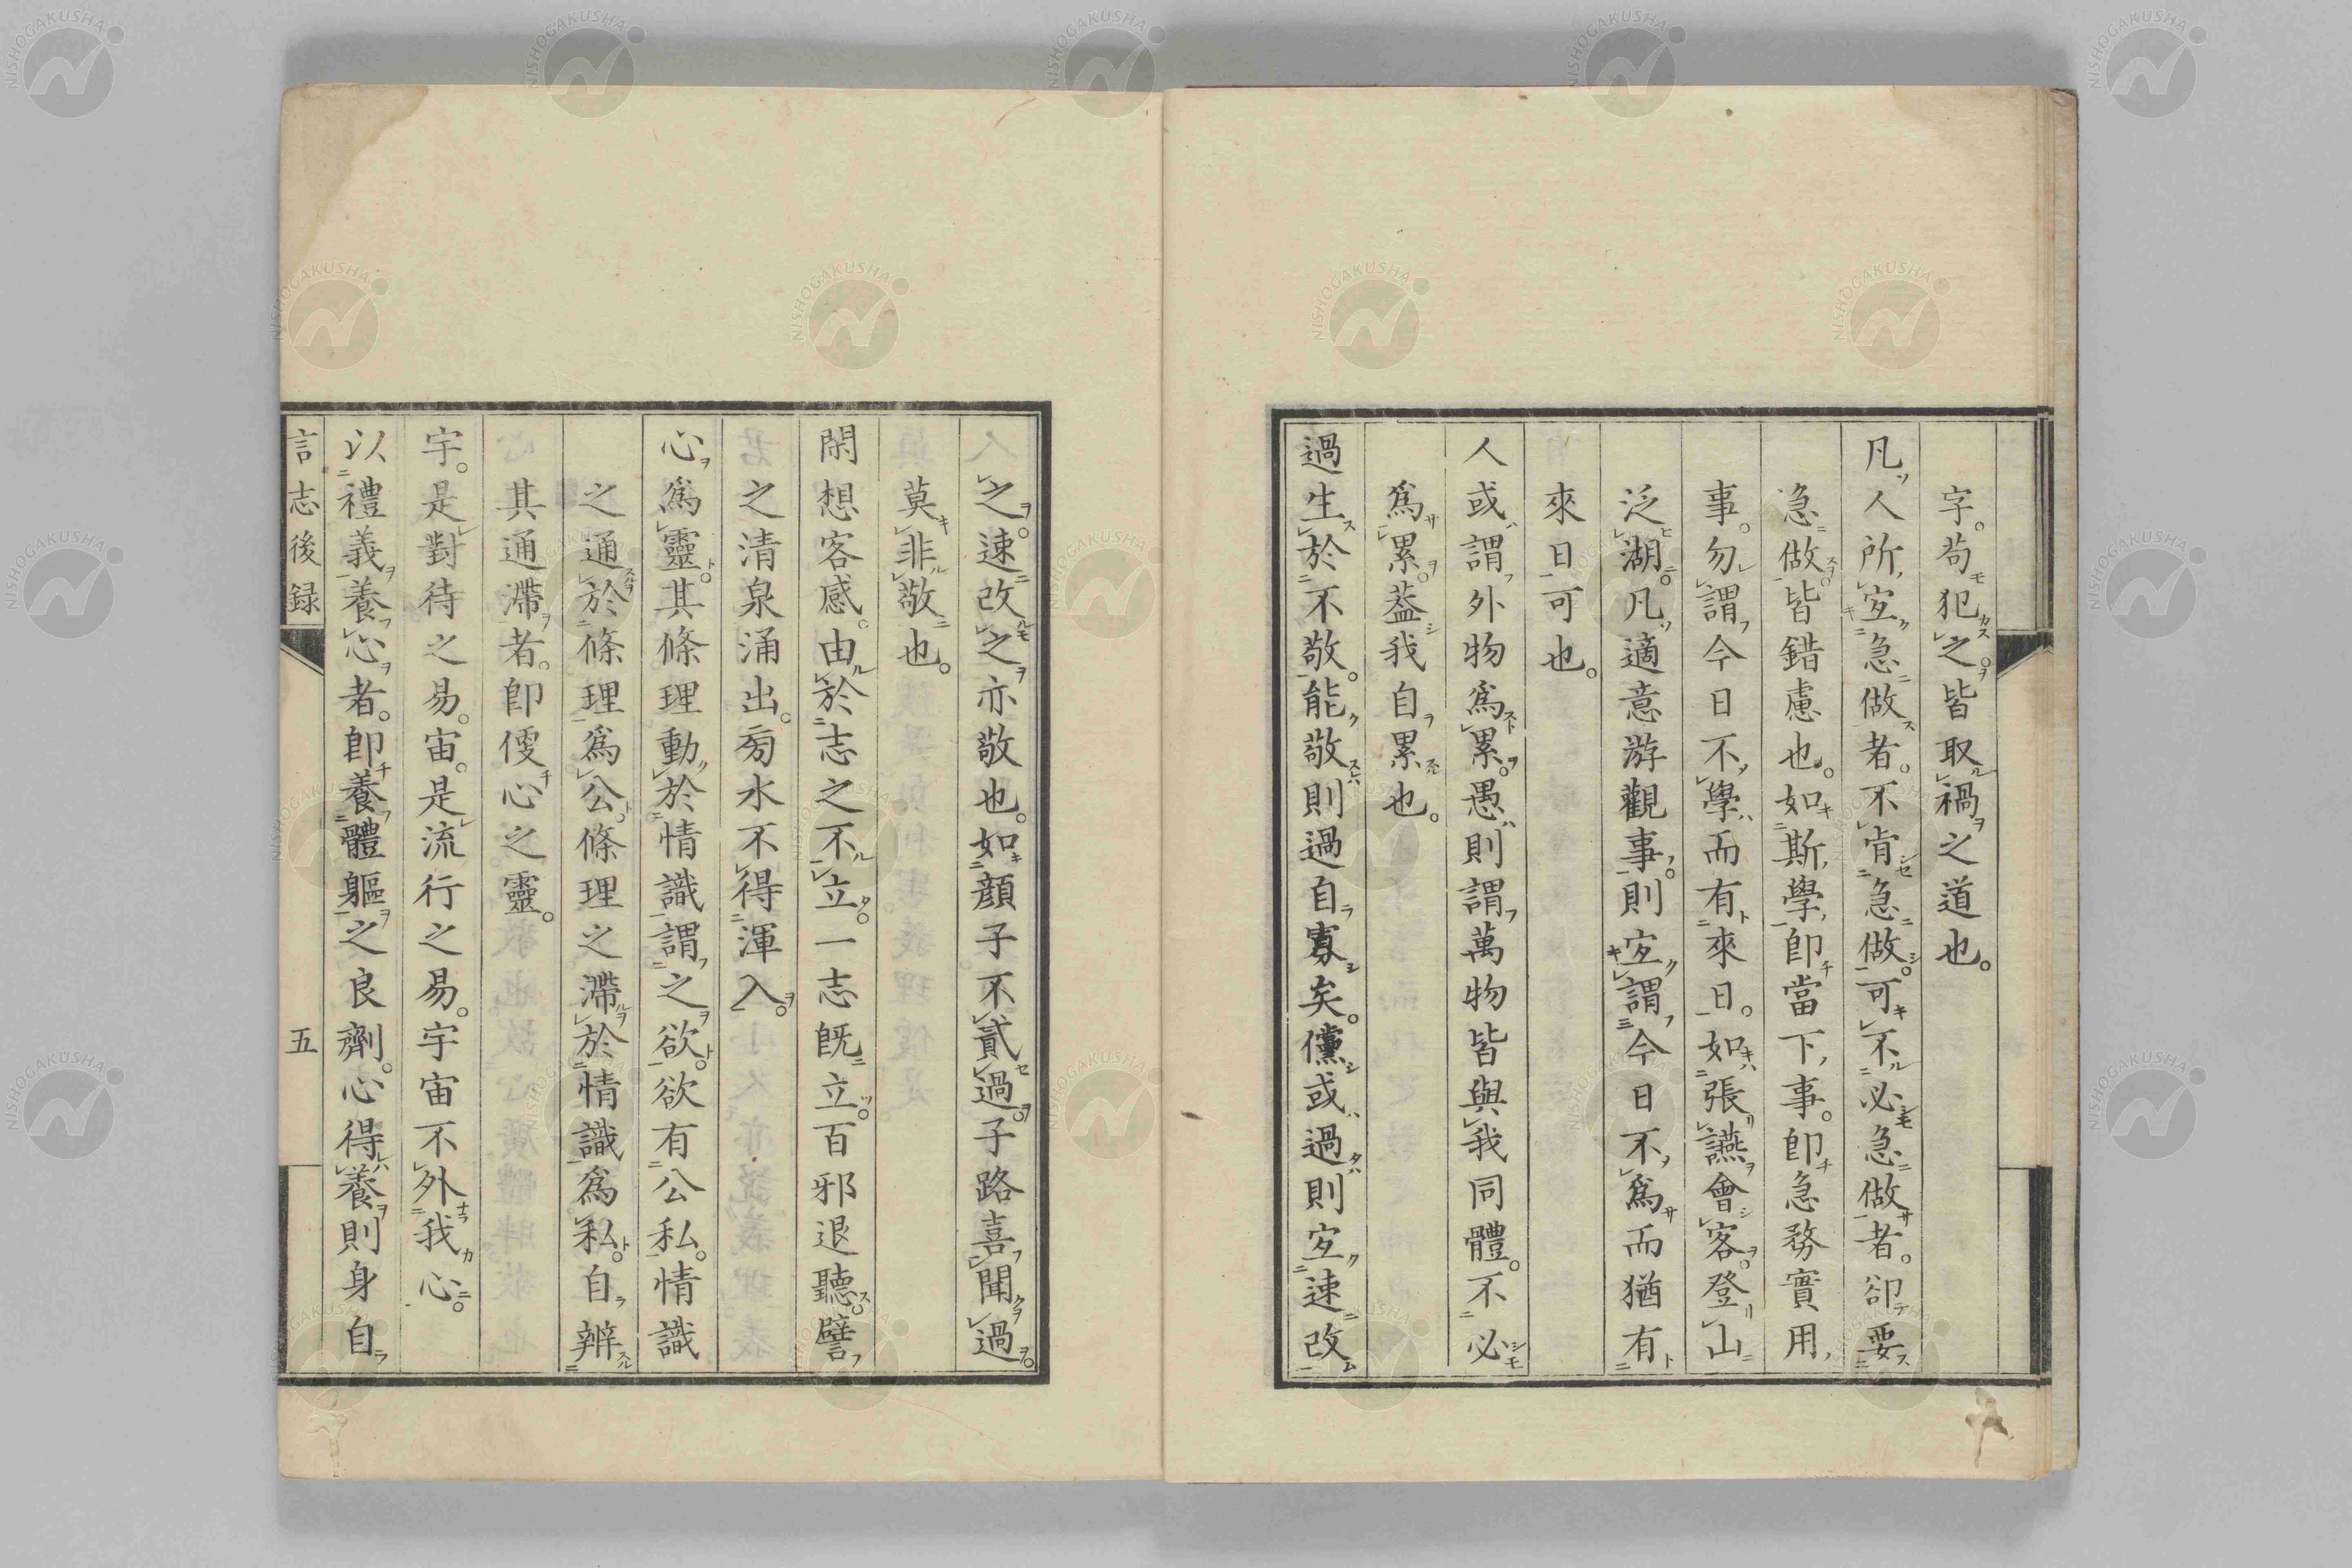 字。苟犯之。皆取禍之道也。
凡人所宜急做者。不肯急做。可不必急做者。卻要
急做。皆錯慮也。如斯學。卽當下事。卽急務實用。
事。勿謂今日不學而有來日。如張讌會客。登山
泛湖。凡適意游觀事。則宜謂今日不爲而猶有
來日可也。
人或謂外物爲累。愚則謂萬物皆與我同體。不必
爲累。葢我自累也。
過生於不敬。能敬則過自寡矣。儻或過則宜速改
之。速改之亦敬也。如顏子不貳過。子路喜聞過。
莫非敬也。
閑想客感。由於志之不立。一志既立。百邪退聽。譬
之清泉涌出。旁水不得渾入。
心爲靈。其條理動於情識。謂之欲。欲有公私。情識
之通於條理爲公。條理之滯於情識爲私。自辨
其通滯者。卽便心之靈。
宇。是對待之易。宙。是流行之易。宇宙不外我心。
以禮義養心者。卽養體軀之良劑。心得養則身自
言志後録
五
NISHOGAKUSHA